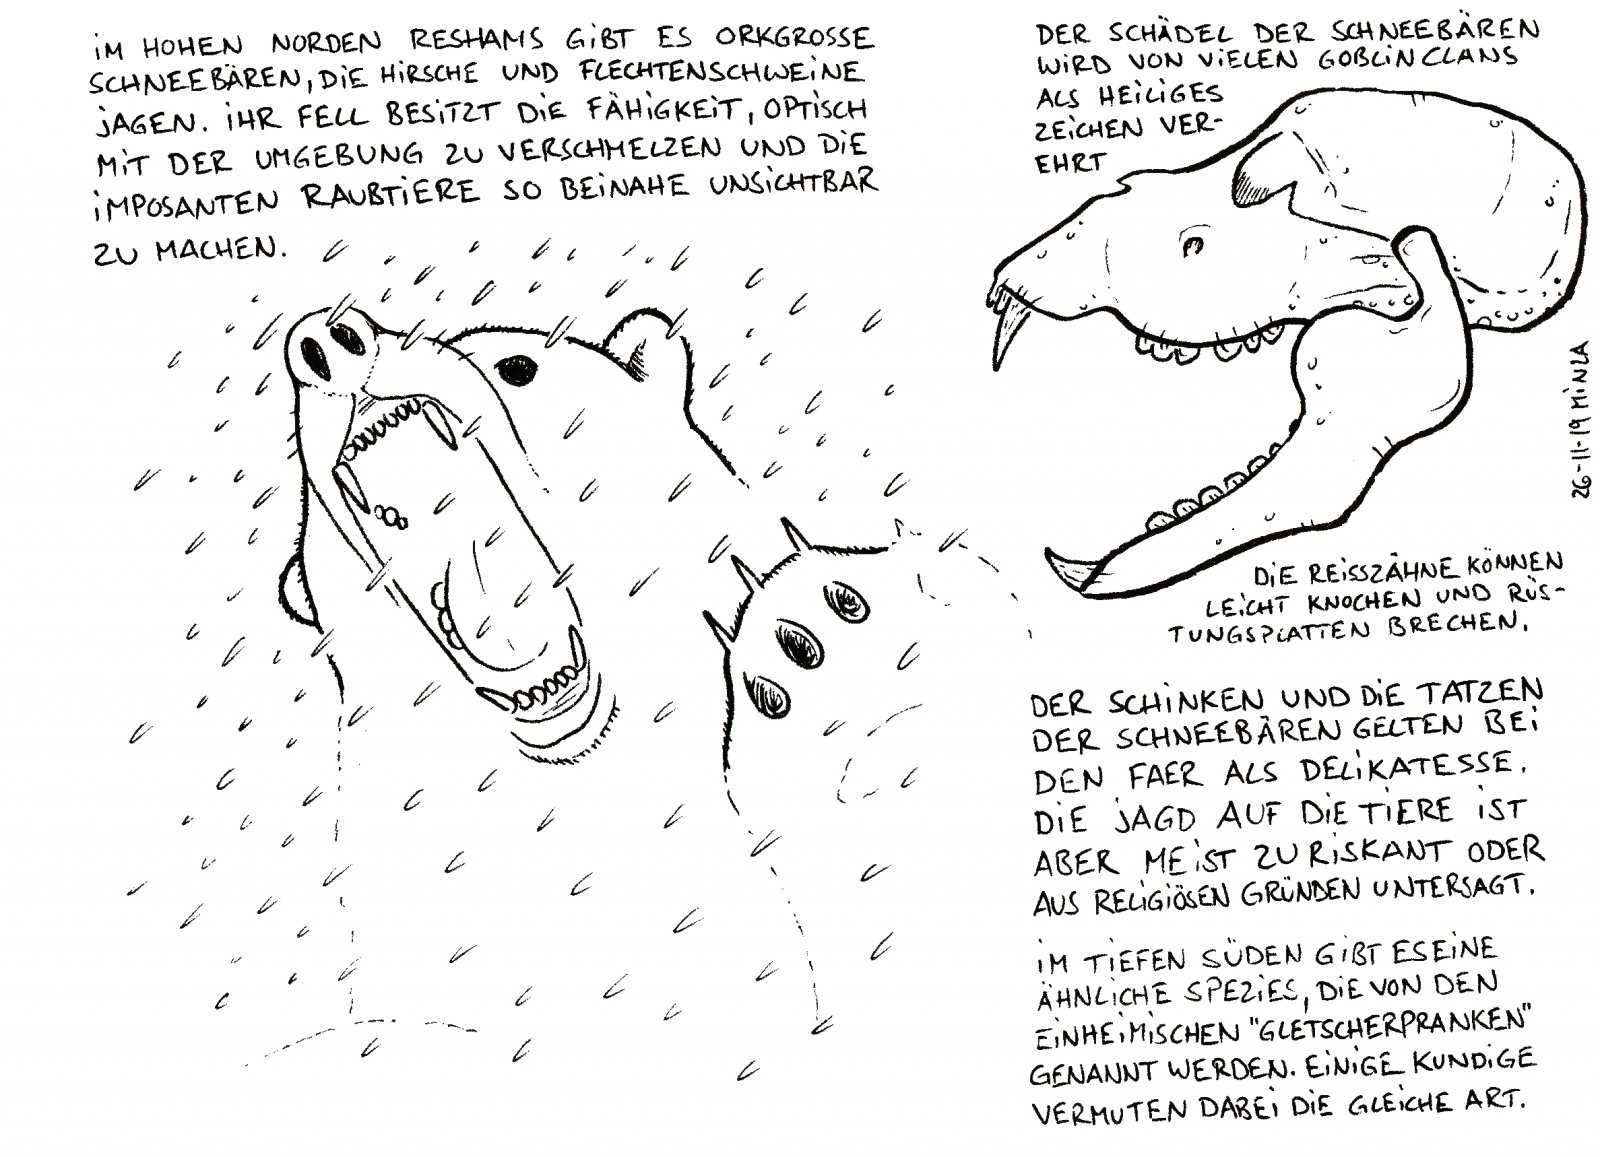 IM HOHEN NORDEN RESHAMS GIBT ES ORKGROSSE
SCHNEEBÄREN, DIE HIRSCHE UND FLECHTENSCHWEINE
JAGEN. IHR FELL BESITZT DIE FÄHIGKEIT, OPTISCH
MIT DER UMGEBUNG ZU VERSCHMELZEN UND DIE
IMPOSANTEN RAUBTIERE SO BEINAHE UNSICHTBAR
ZU MACHEN.
DER SCHÄDEL DER SCHNEEBÄREN
WIRD VON VIELEN GOBLINCLANS
ALS HEILIGES
ZEICHEN VER-
EHRT
26-11-19 MINZA
DIE REISSZÄHNE KÖNNEN
LEICHT KNOCHEN UND RÜS-
TUNGSPLATTEN BRECHEN.
DER SCHINKEN UND DIE TATZEN
DER SCHNEEBÄREN GELTEN BEI
DEN FAER ALS DELIKATESSE.
DIE JAGD AUF DIE TIERE IST
ABER MEIST ZU RISKANT ODER
AUS RELIGIÖSEN GRÜNDEN UNTERSAGT.
IM TIEFEN SÜDEN GIBT ES EINE
ÄHNLICHE SPEZIES, DIE VON DEN
EINHEIMISCHEN "GLETSCHERPRANKEN"
GENANNT WERDEN. EINIGE KUNDIGE
VERMUTEN DABEI DIE GLEICHE ART.